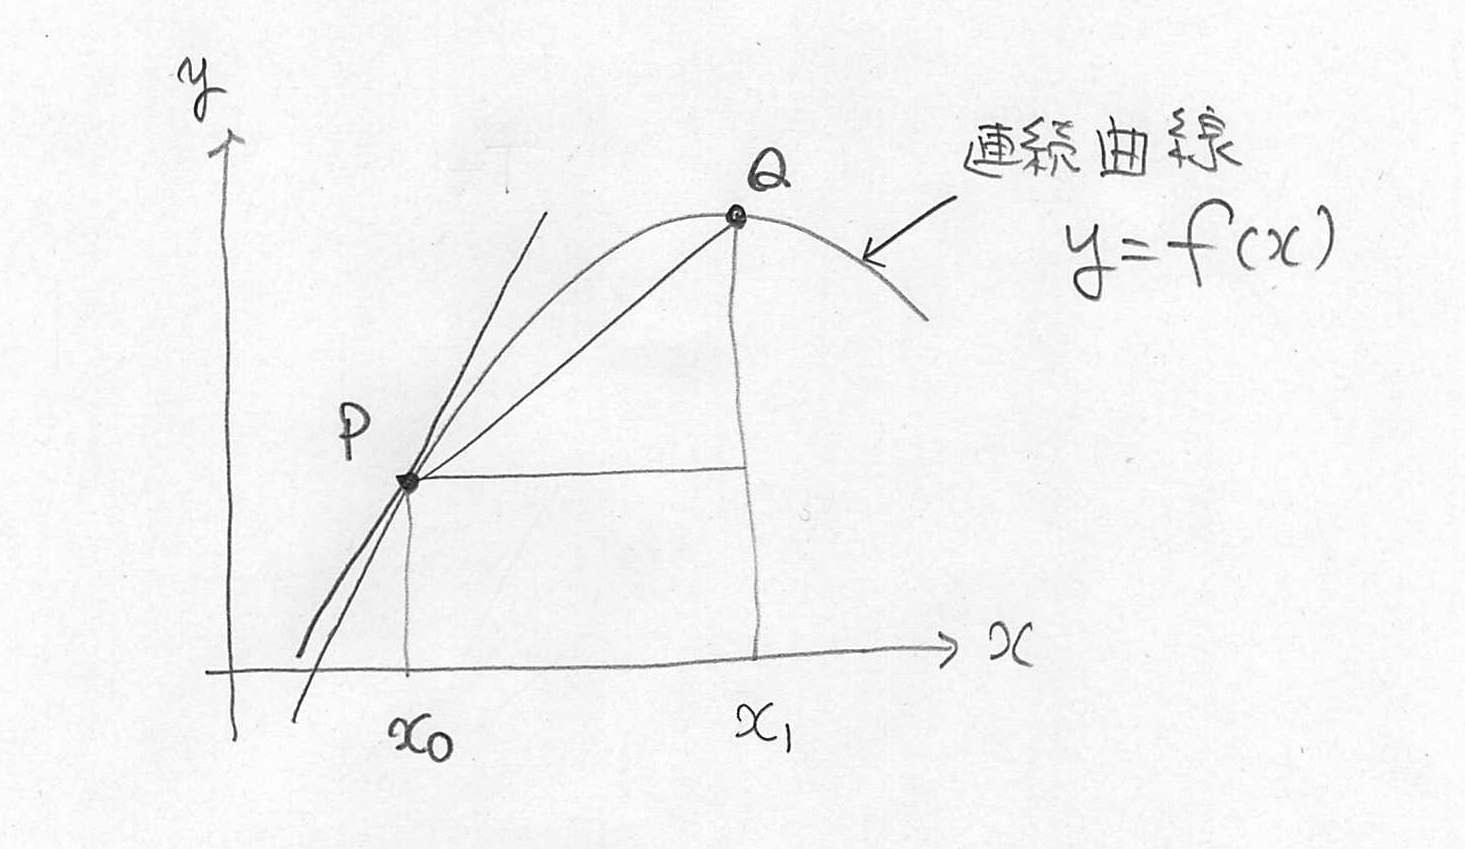 y
Q
連続曲線
y=f(x)
P
x
x₀
x₁